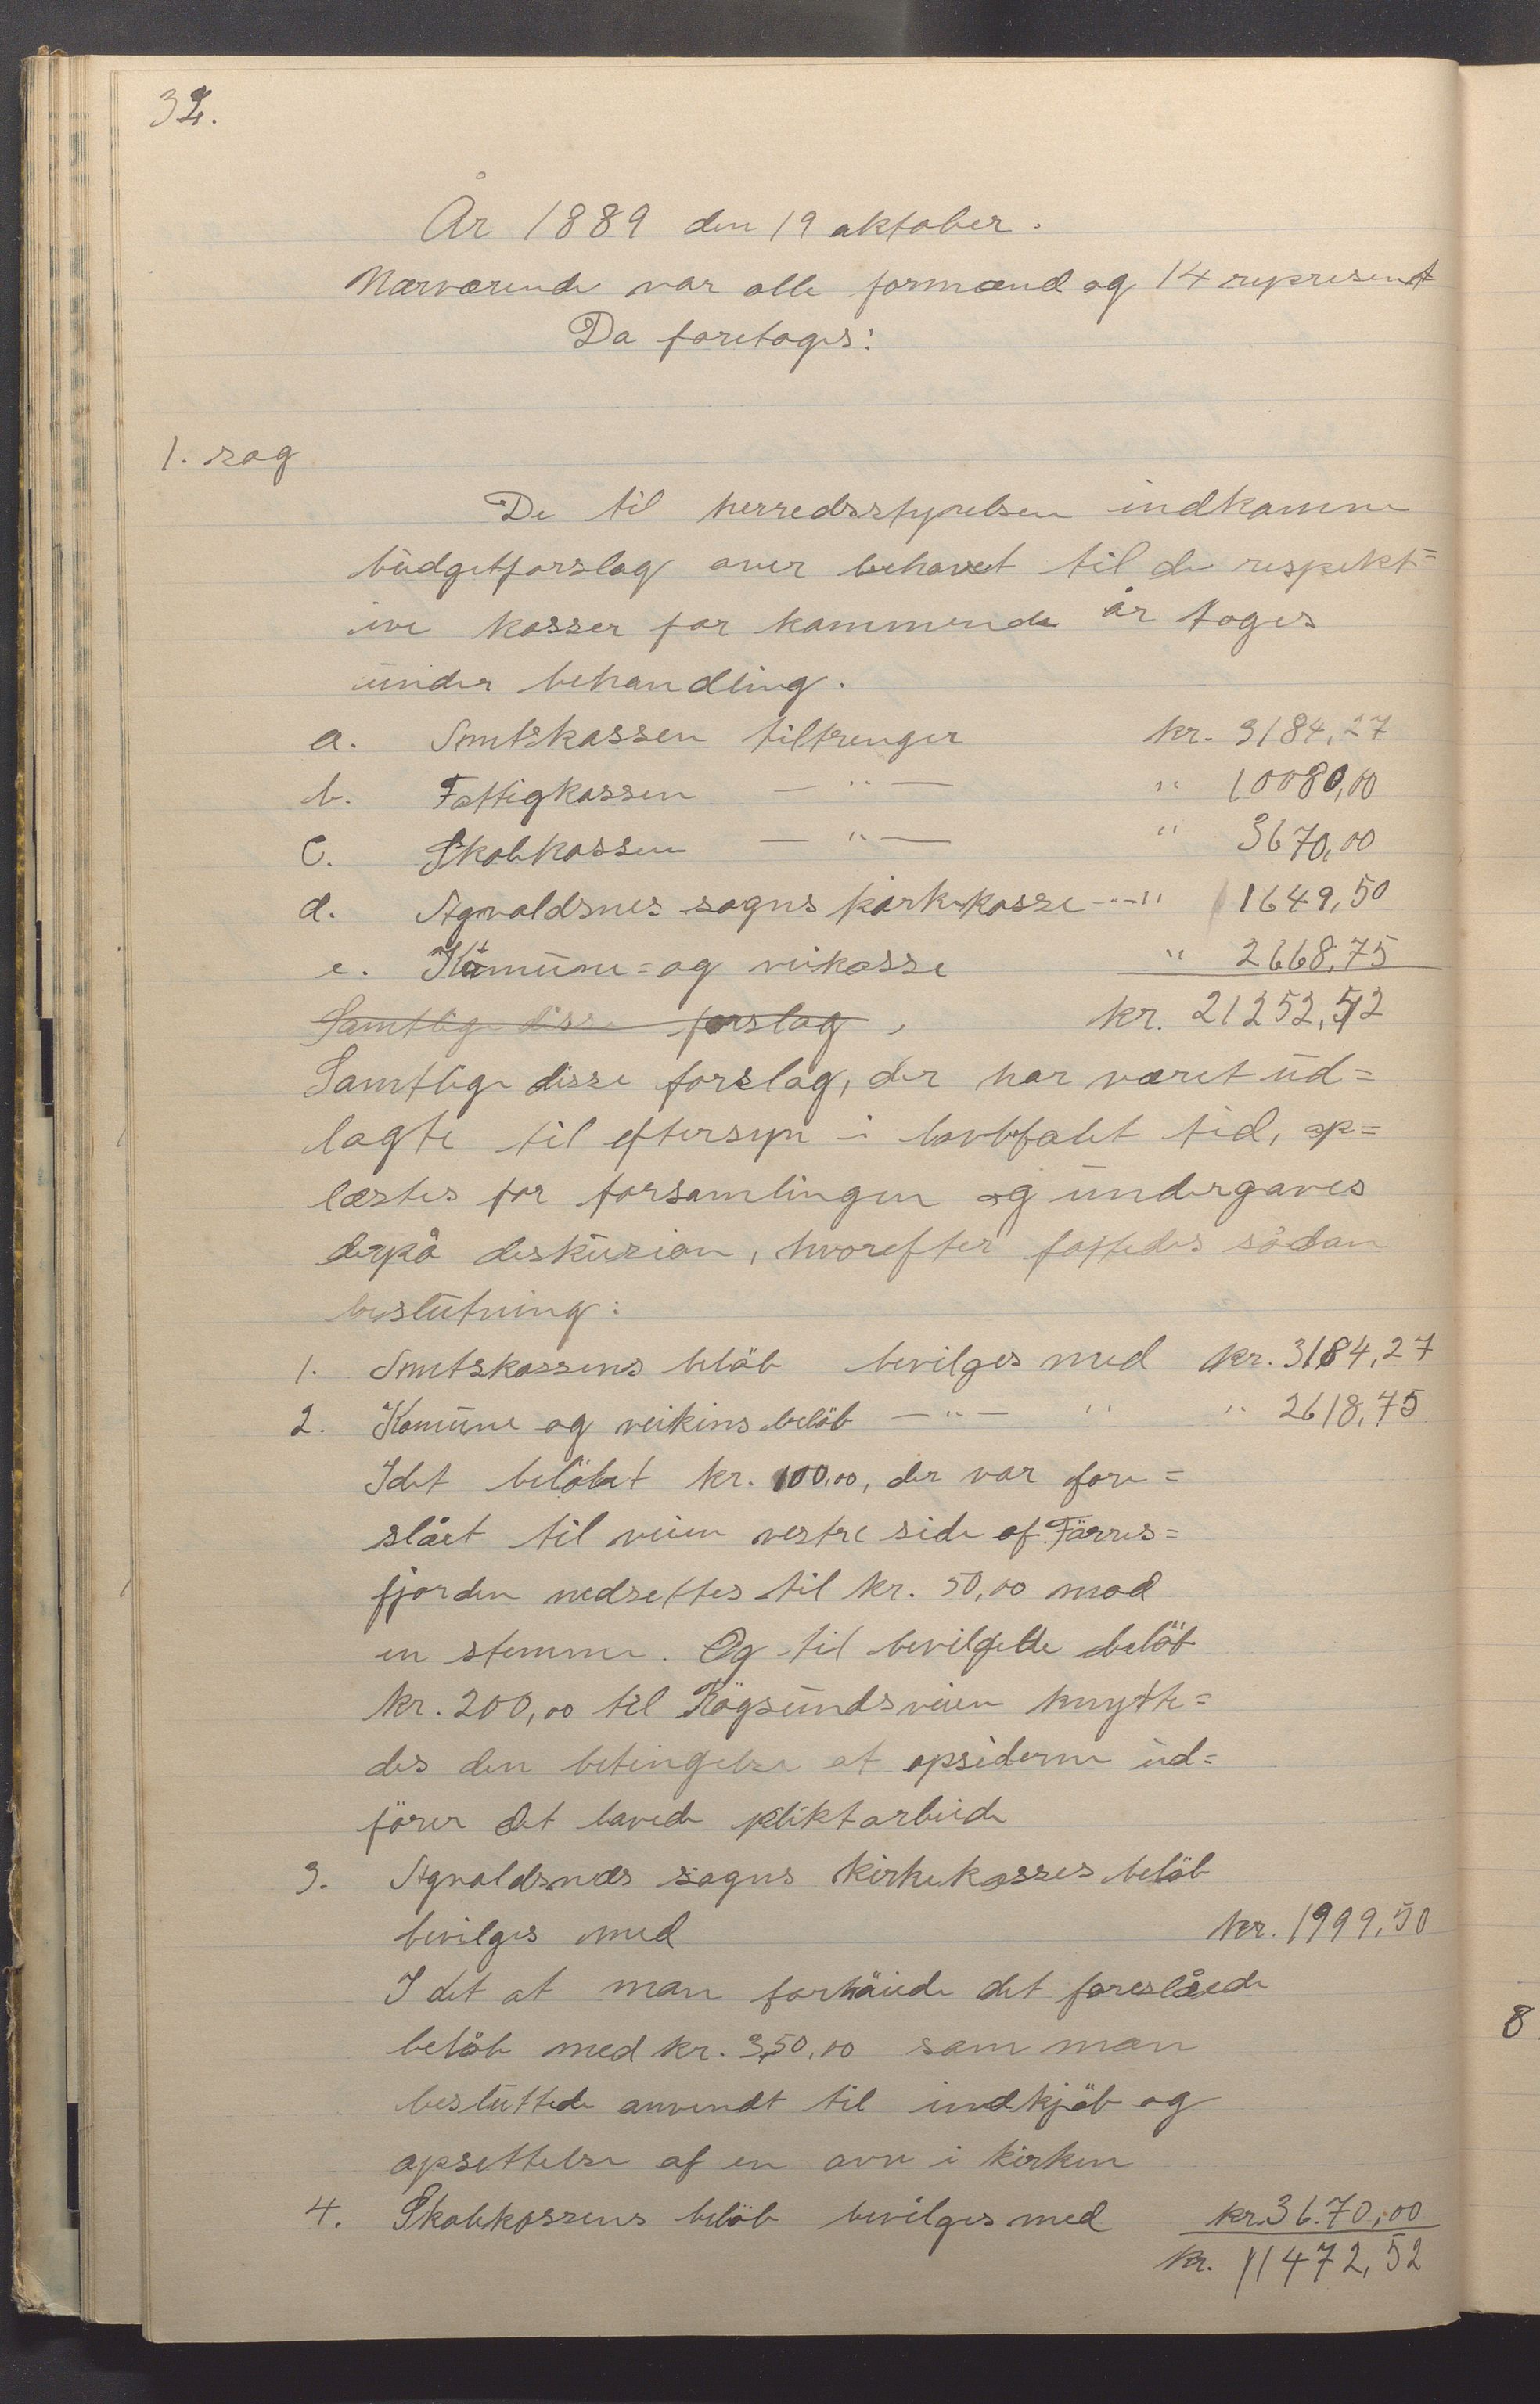 32.
År 1889 den 19 oktober.
Nærværende var alle formænd og 14 represent
Da foretoges:
1. sag
De til herredsstyrelsen indkomne
budgetforslag over behovet til de respekt=
ive kasser for kommende år toges
under behandling.
a. Amtskassen tiltrenger kr. 3184,27
b. Fattigkassen — " — " 10080,00
c. Skolekassen — " — " 3670,00
d. Agvaldsnes sogns kirkekasse -"- " 1649,50
e. Komune= og veikasse " 2668,75
Samtlige disse forslag, kr. 21252,52
Samtlige disse forslag, der har været ud=
lagte til eftersyn i lovbefalet tid, op=
læstes for forsamlingen og undergaves
derpå diskusion, hvorefter fattedes sådan
beslutning:
1. Amtskassens beløb bevilges med kr. 3184,27
2. Komune og veikens beløb — " — " " 2618,75
Idet beløbet kr. 100,00, der var fore=
slået til veien vestre side af Førres=
fjorden nedsettes til kr. 50,00 mod
en stemme. Og til bevilgede beløb
kr. 200,00 til Røgsundsveien knytte=
des den betingelse at opsiderne ud=
fører det lavede pliktarbeide
3. Agvaldsnes sogns kirkekasses beløb
bevilges med kr. 1999,50
I det at man forhøiede det foreslåede
beløb med kr. 350,00 som man
besluttede anvendt til indkjøb og
opsettelse af en ovn i kirken
4. Skolekassens beløb bevilges med kr. 3670,00
kr. 11472,52
8